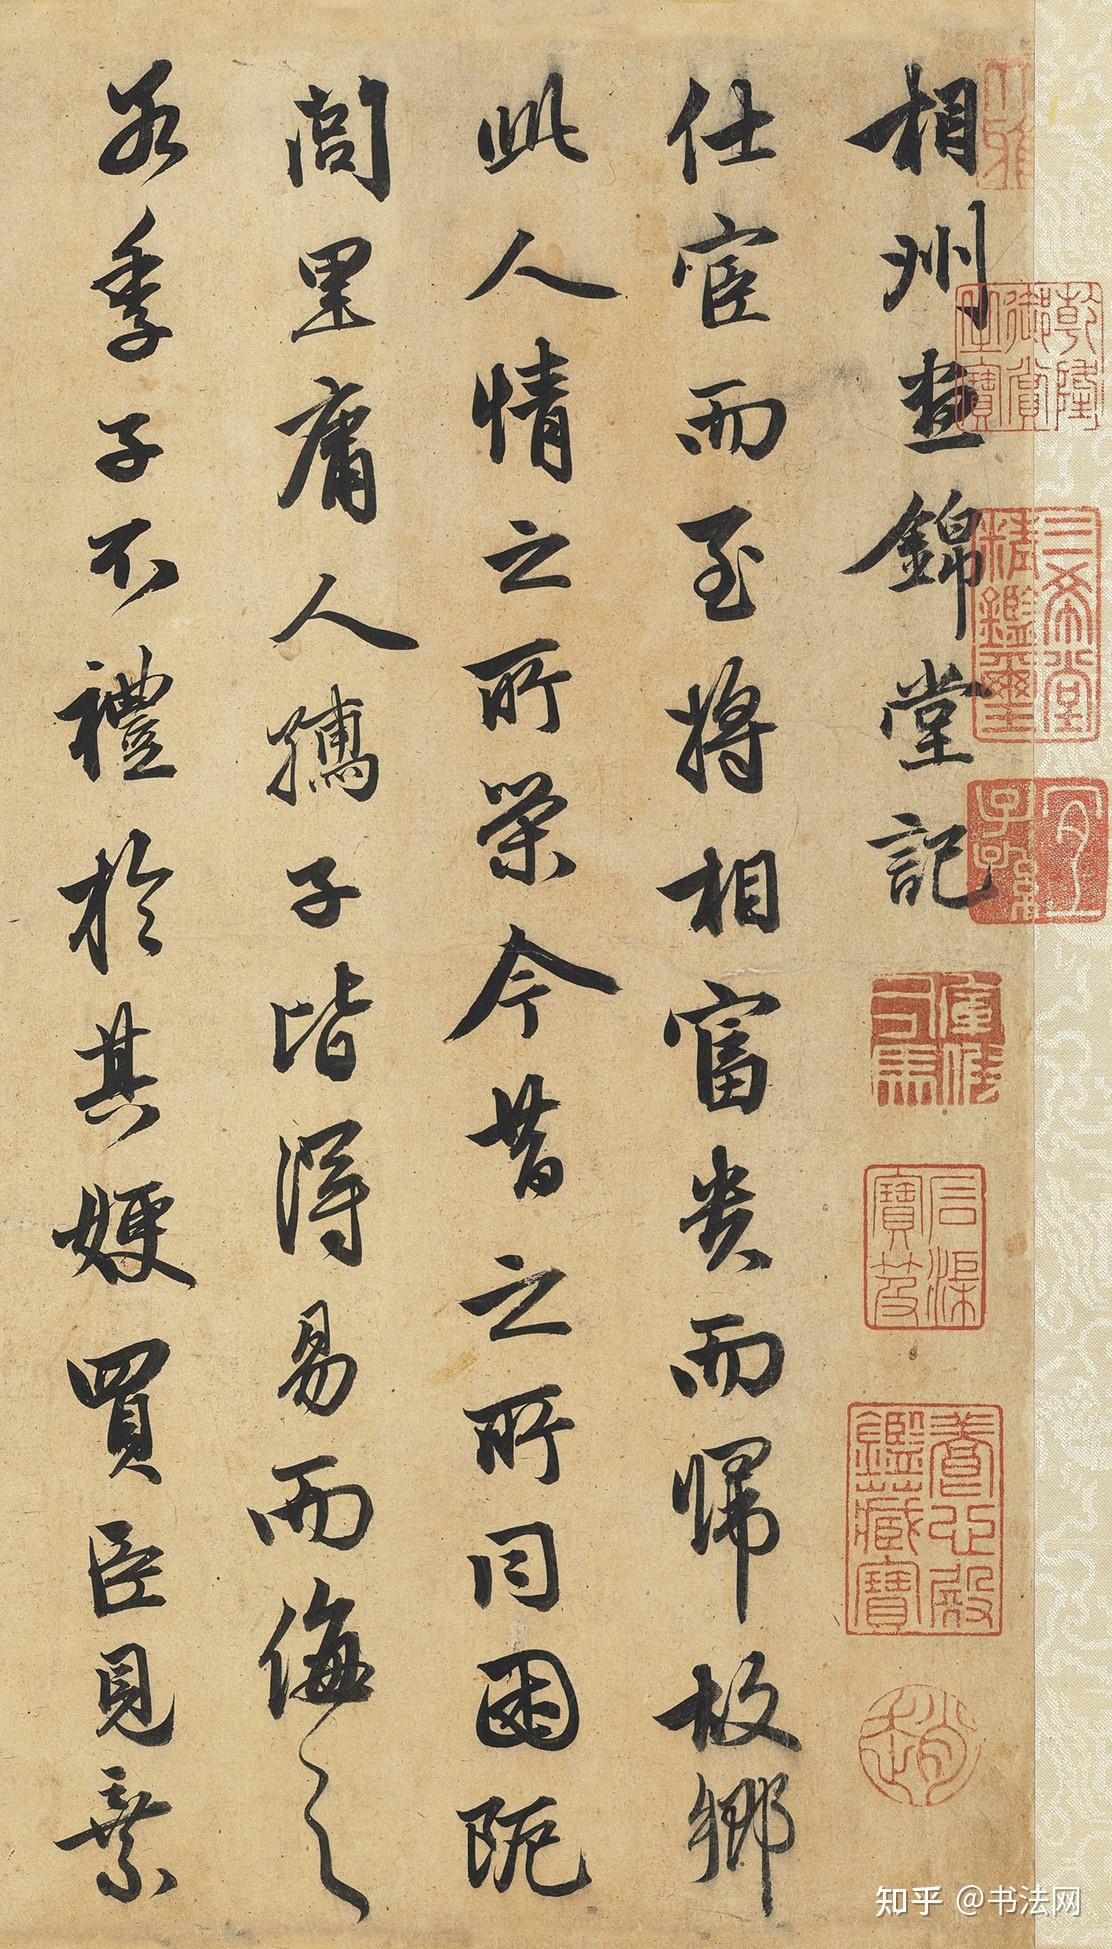 相州晝錦堂記
仕宦而至將相富貴而歸故鄉
此人情之所榮今昔之所同困阨
閭里庸人孺子皆得易而侮之
若季子不禮於其嫂買臣見棄
大雅
乾隆御賞之寶
三希堂精鑑璽
宜子孫
軍假司馬
石渠寶笈
養心殿鑑藏寶
趙
知乎 @书法网